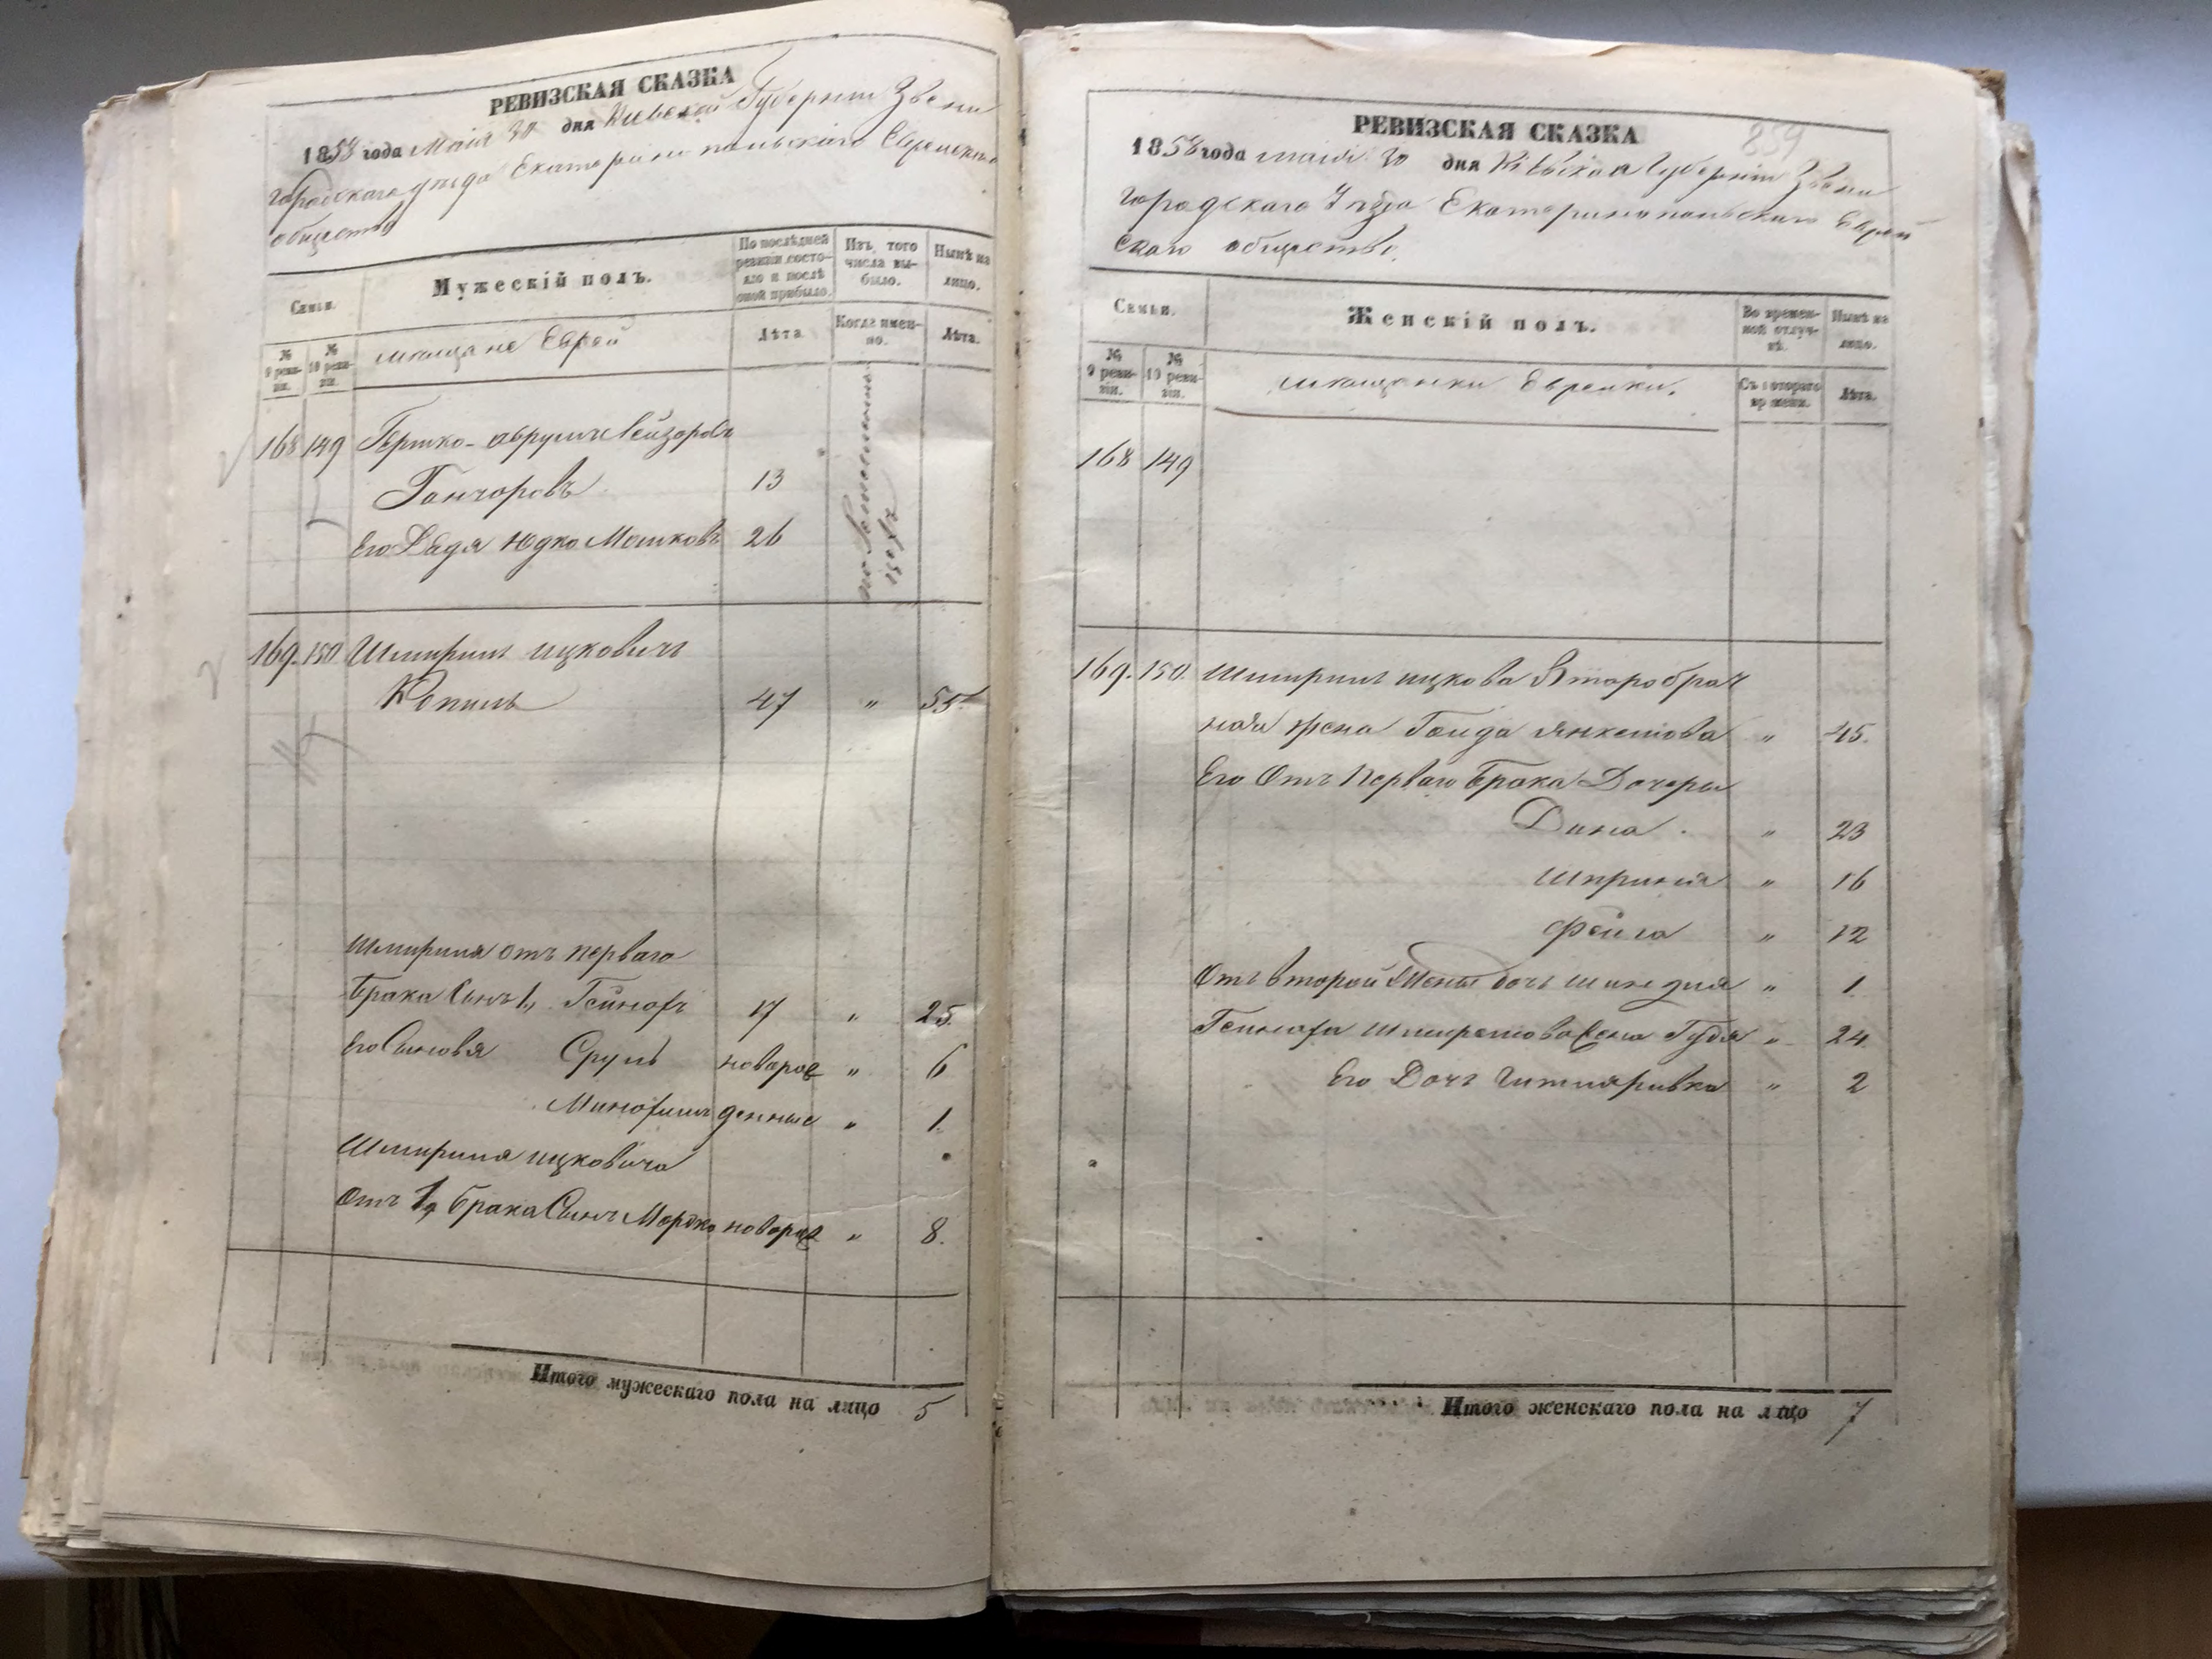 РЕВИЗСКАЯ СКАЗКА
1858 года Маія 30 дня Кіевской Губерніи Звени
городскаго уѣзда Екатеринопольскаго Еврейскаго
общества
Семьи.
Мужескій полъ.
По послѣдней ревизіи состояло и послѣ оной прибыло.
Изъ того числа выбыло.
Нынѣ на лицо.
№ 9 ревизіи.
№ 10 ревизіи.
мѣщане Евреи
Лѣта
Когда именно.
Лѣта.
168 149 Гершко-Аврумъ Лейзоровъ
Гончоровъ 13
Его Дядя Юдко Мошковъ 26
169. 150 Шмириль Ицковичъ
Копиль 47 " 55
Шмириля отъ перваго
брака Сынъ 1, 17 " 25.
Его Сыновя Сруль новорож " 6
денные " 1.
Шмириля Ицковича
Отъ 1го брака Сынъ Мордко новорож " 8.
Итого мужескаго пола на лицо 5
859
РЕВИЗСКАЯ СКАЗКА
1858 года маія 30 дня Кіевской Губерніи Звени
городскаго Уѣзда Екатеринопольскаго Еврей
скаго общества.
Семьи.
Женскій полъ.
Во временной отлучкѣ.
Нынѣ на лицо.
№ 9 ревизіи.
№ 10 ревизіи.
мѣщанки Еврейки.
Съ котораго времени.
Лѣта.
168 149
169. 150. Шмириля Ицкова Второбрач
ная жена Янкелова " 45.
Его Отъ Перваго Брака Дочеры
Дина. " 23
Шпринця " 16
Фейга " 12
Отъ второй Жены дочь Шиндля " 1.
Шмирелова жена Гудя " 24
Его Дочь " 2
Итого женскаго пола на лицо 7